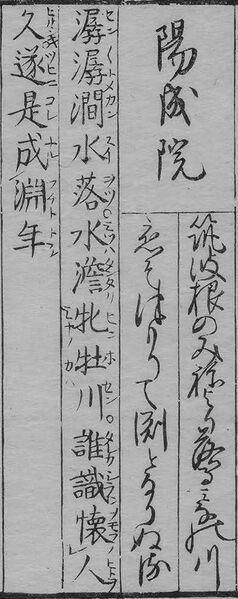 陽成院
筑波根のみねより落るみなの川
恋そ津もりて渕となりぬる
潺潺澗水落水澹牝牡川誰識懐人
久遂是成淵年